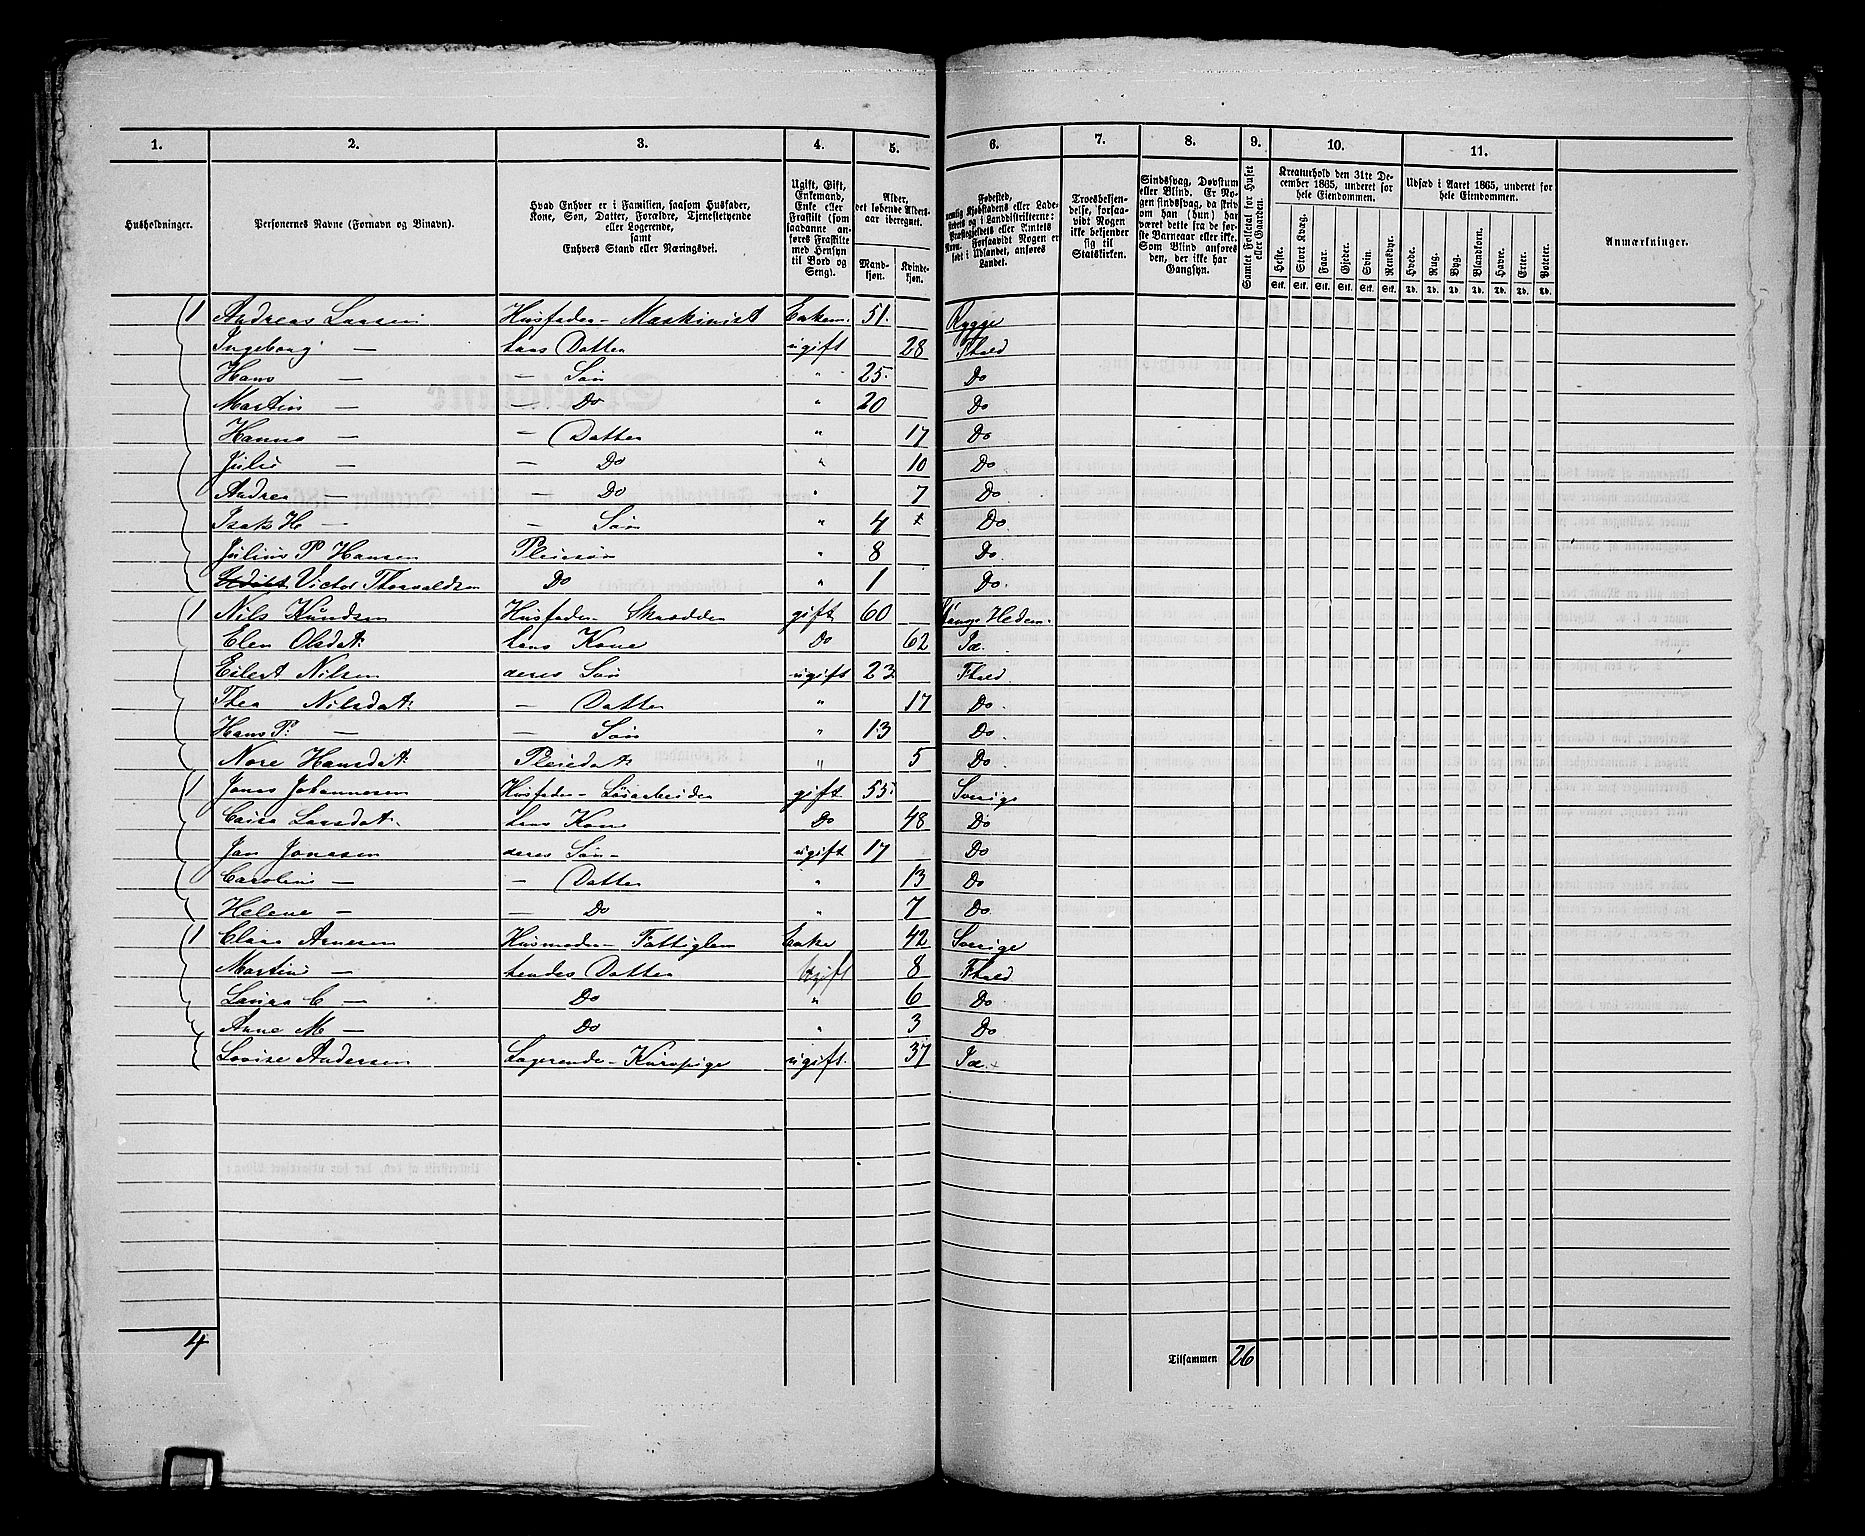 1. 2. 3. 4. 5. 6. 7. 8. 9. 10. 11.
Husholdninger.
Personernes Navne (Fornavn og Binavn).
Hvad Enhver er i Familien, saasom Husfader, Kone, Søn, Datter, Forældre, Tjenestetyende eller Logerende, samt Enhvers Stand eller Næringsvei.
Ugift, Gift, Enkemand, Enke eller Fraskilt (som saadanne anføres Fraskilte med Hensyn til Bord og Seng).
Alder, det løbende Aldersaar iberegnet.
Mandkjøn. Kvindekjøn.
Fødested, nemlig Kjøbstadens eller Ladestedets og i Landdistrikterne: Præstegjeldets eller Amtets Navn. Forsaavidt Nogen er født i Udlandet, anføres Landet.
Troesbekjendelse, forsaavidt Nogen ikke bekjender sig til Statskirken.
Sindssvag, Døvstum eller Blind. Er Nogen sindssvag, da skrives om han (hun) har været dette fra de første Barneaar eller ikke. Som Blind anføres den, der ikke har Gangsyn.
Samlet Folketal for Huset eller Gaarden.
Kreaturhold den 31te December 1865, underet for hele Eiendommen.
Heste. Stort Kvæg. Faar. Gjeder. Svin. Rensdyr.
Stk. Stk. Stk. Stk. Stk. Stk.
Udsæd i Aaret 1865, underet for hele Eiendommen.
Hvede. Rug. Byg. Blandkorn. Havre. Erter. Poteter.
Td. Td. Td. Td. Td. Td. Td.
Anmærkninger.
1 Andreas Larsen Husfader - Maskinist Enkem. 51. Rygge
Ingeborg — hans Datter ugift 28 Fhald
Hans — — Søn " 25. Do
Martin — — Do " 20 Do
Hanna — — Datter " 17 Do
Julie — — Do " 10 Do
Andrea — — Do " 7 Do.
Isak H — — Søn " 4 Do.
Julius P Hansen Pleiesøn " 8 Do.
Victor Thorvaldsen Do " 1 Do.
1 Nils Knudsen Husfader Skrædder gift 60 Stange Hedem.
Elen Olsdat. hans Kone Do 62 Id.
Eilert Nilsen deres Søn ugift 23 Fhald.
Thea Nilsdat. — Datter " 17 Do.
Hans P. — — Søn " 13 Do.
Nore Hansdat. Pleiedat. " 5 Do.
1 Jonas Johannesen Husfader - Løsarbeider gift 55. Sverige
Caisa Larsdat. hans Kone Do 48 Do
Jan Jonasen deres Søn - ugift 17 Do
Caroline — — Datter " 13 Do
Helene — — Do " 7 Do.
1 Clara Arnesen Husmoder - Fattiglem Enke 42 Sverige
Martine — hendes Datter Ugift 8 Fhald.
Laura C — Do " 6 Do.
Anne M — Do " 3 Do.
Lovise Andersen Logerende - Kurvpige ugift. 37 Id.
4
Tilsammen 26